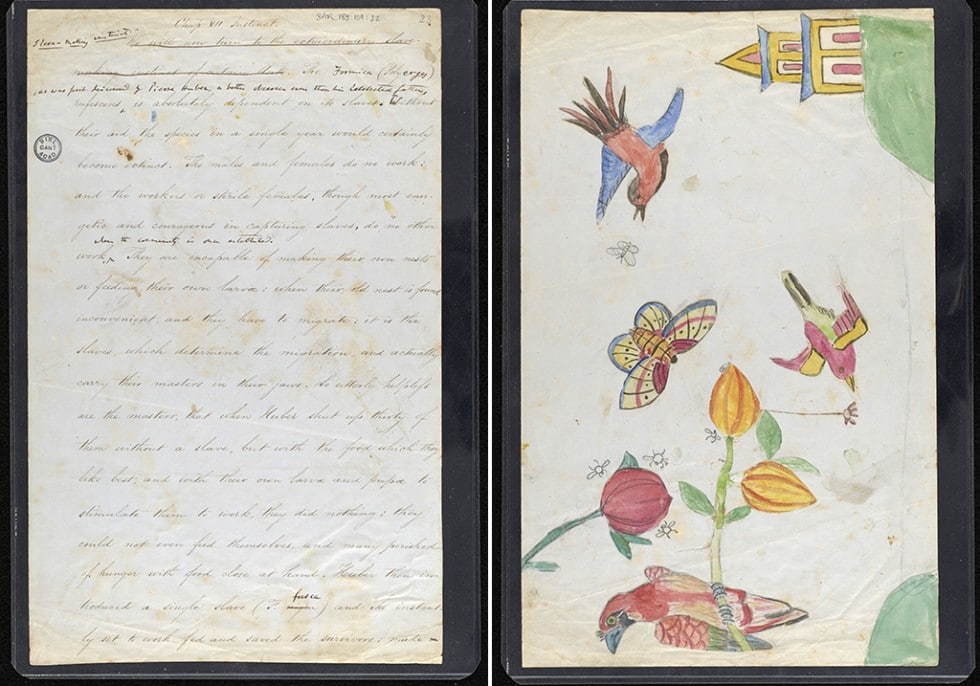 DAR 185:109:22
23
Chap. VII Instinct.
Slave-making instinct.
We will now turn to the extraordinary slave-
making instinct of certain Ants. The Formica (Polyerges)
as was first discovered by Pierre Huber, a better observer even than his celebrated father,
rufescens, is absolutely dependent on its slaves; Without
their aid the species in a single year would certainly
become extinct. The males and females do no work:
and the workers or sterile females, though most ener-
getic and courageous in capturing slaves, do no other
when the community is once established.
work, They are incapable of making their own nests
or feeding their own larvæ: when their old nest is found
inconvenient, and they have to migrate, it is the
slaves, which determine the migration, and actually
carry their masters in their jaws. So utterly helpless
are the masters, that when Huber shut up thirty of
them without a slave, but with the food which they
like best, and with their own larvæ and pupæ to
stimulate them to work, they did nothing: they
could not even feed themselves and many perished
of hunger with food close at hand. Huber then in-
fusca
troduced a single slave (F. ) and she instant
ly set to work fed and saved the survivors; made